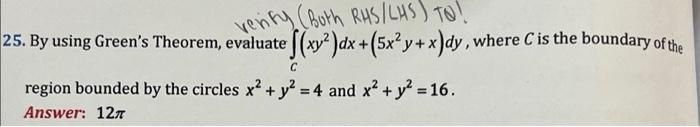 verify (Both RHS/LHS) TQ!
25. By using Green's Theorem, evaluate ∫(xy²)dx + (5x²y + x)dy, where C is the boundary of the
C
region bounded by the circles x² + y² = 4 and x² + y² = 16.
Answer: 12π